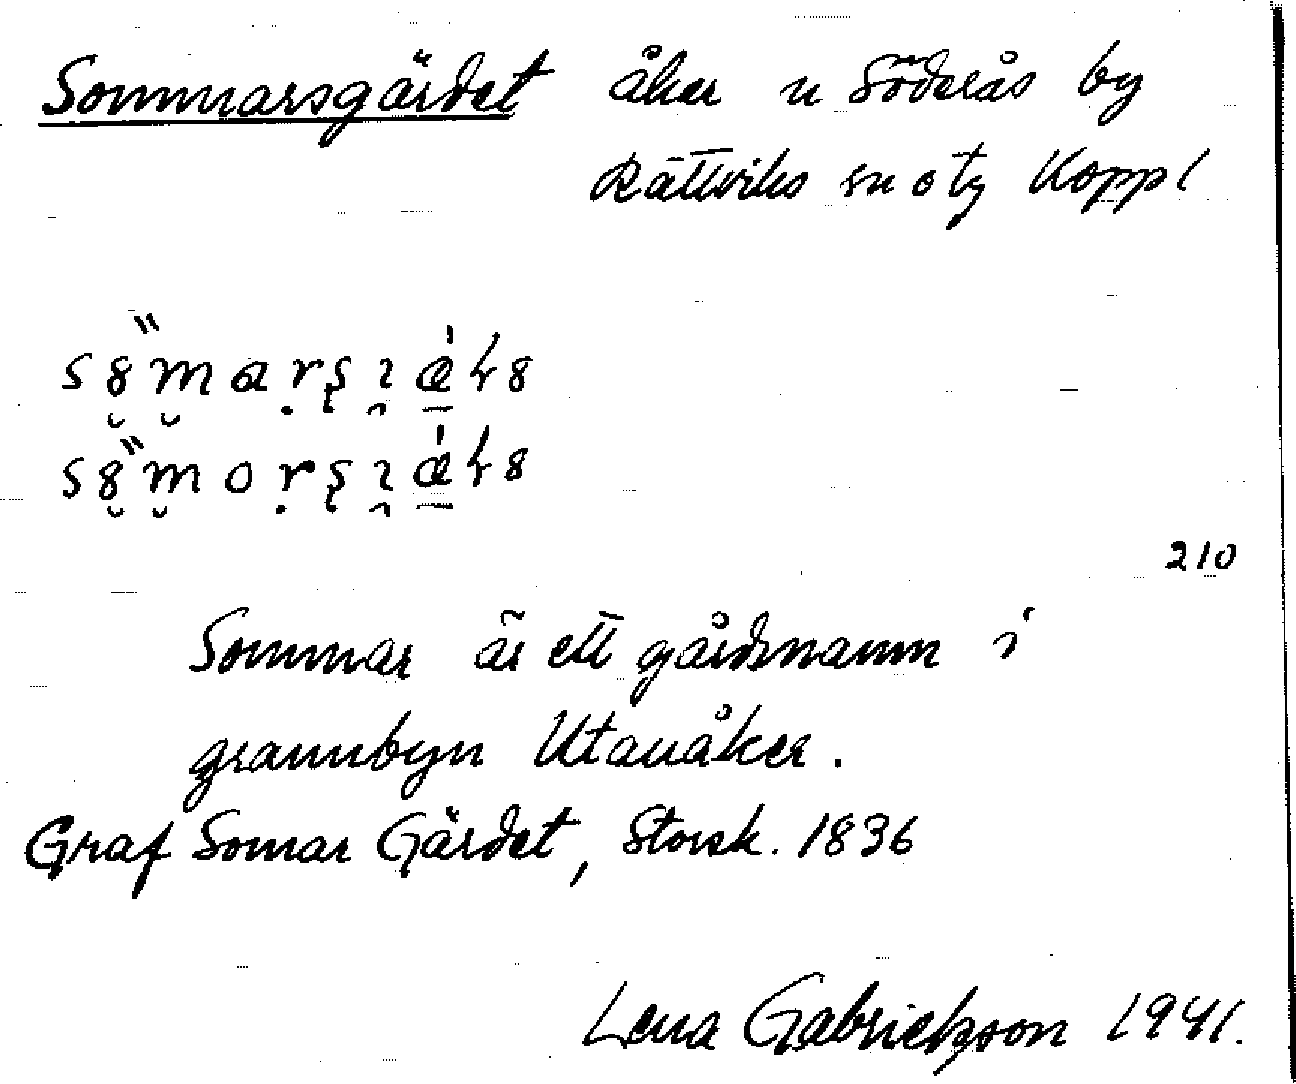 Sommarsgärdet åker u Söderås by
Rättviks sn o tg Kopp l
210
Sommar är ett gårdsnamn i
grannbyn Utanåker.
Graf Somar Gärdet, Storsk. 1836
Lena Gabrielsson 1941.